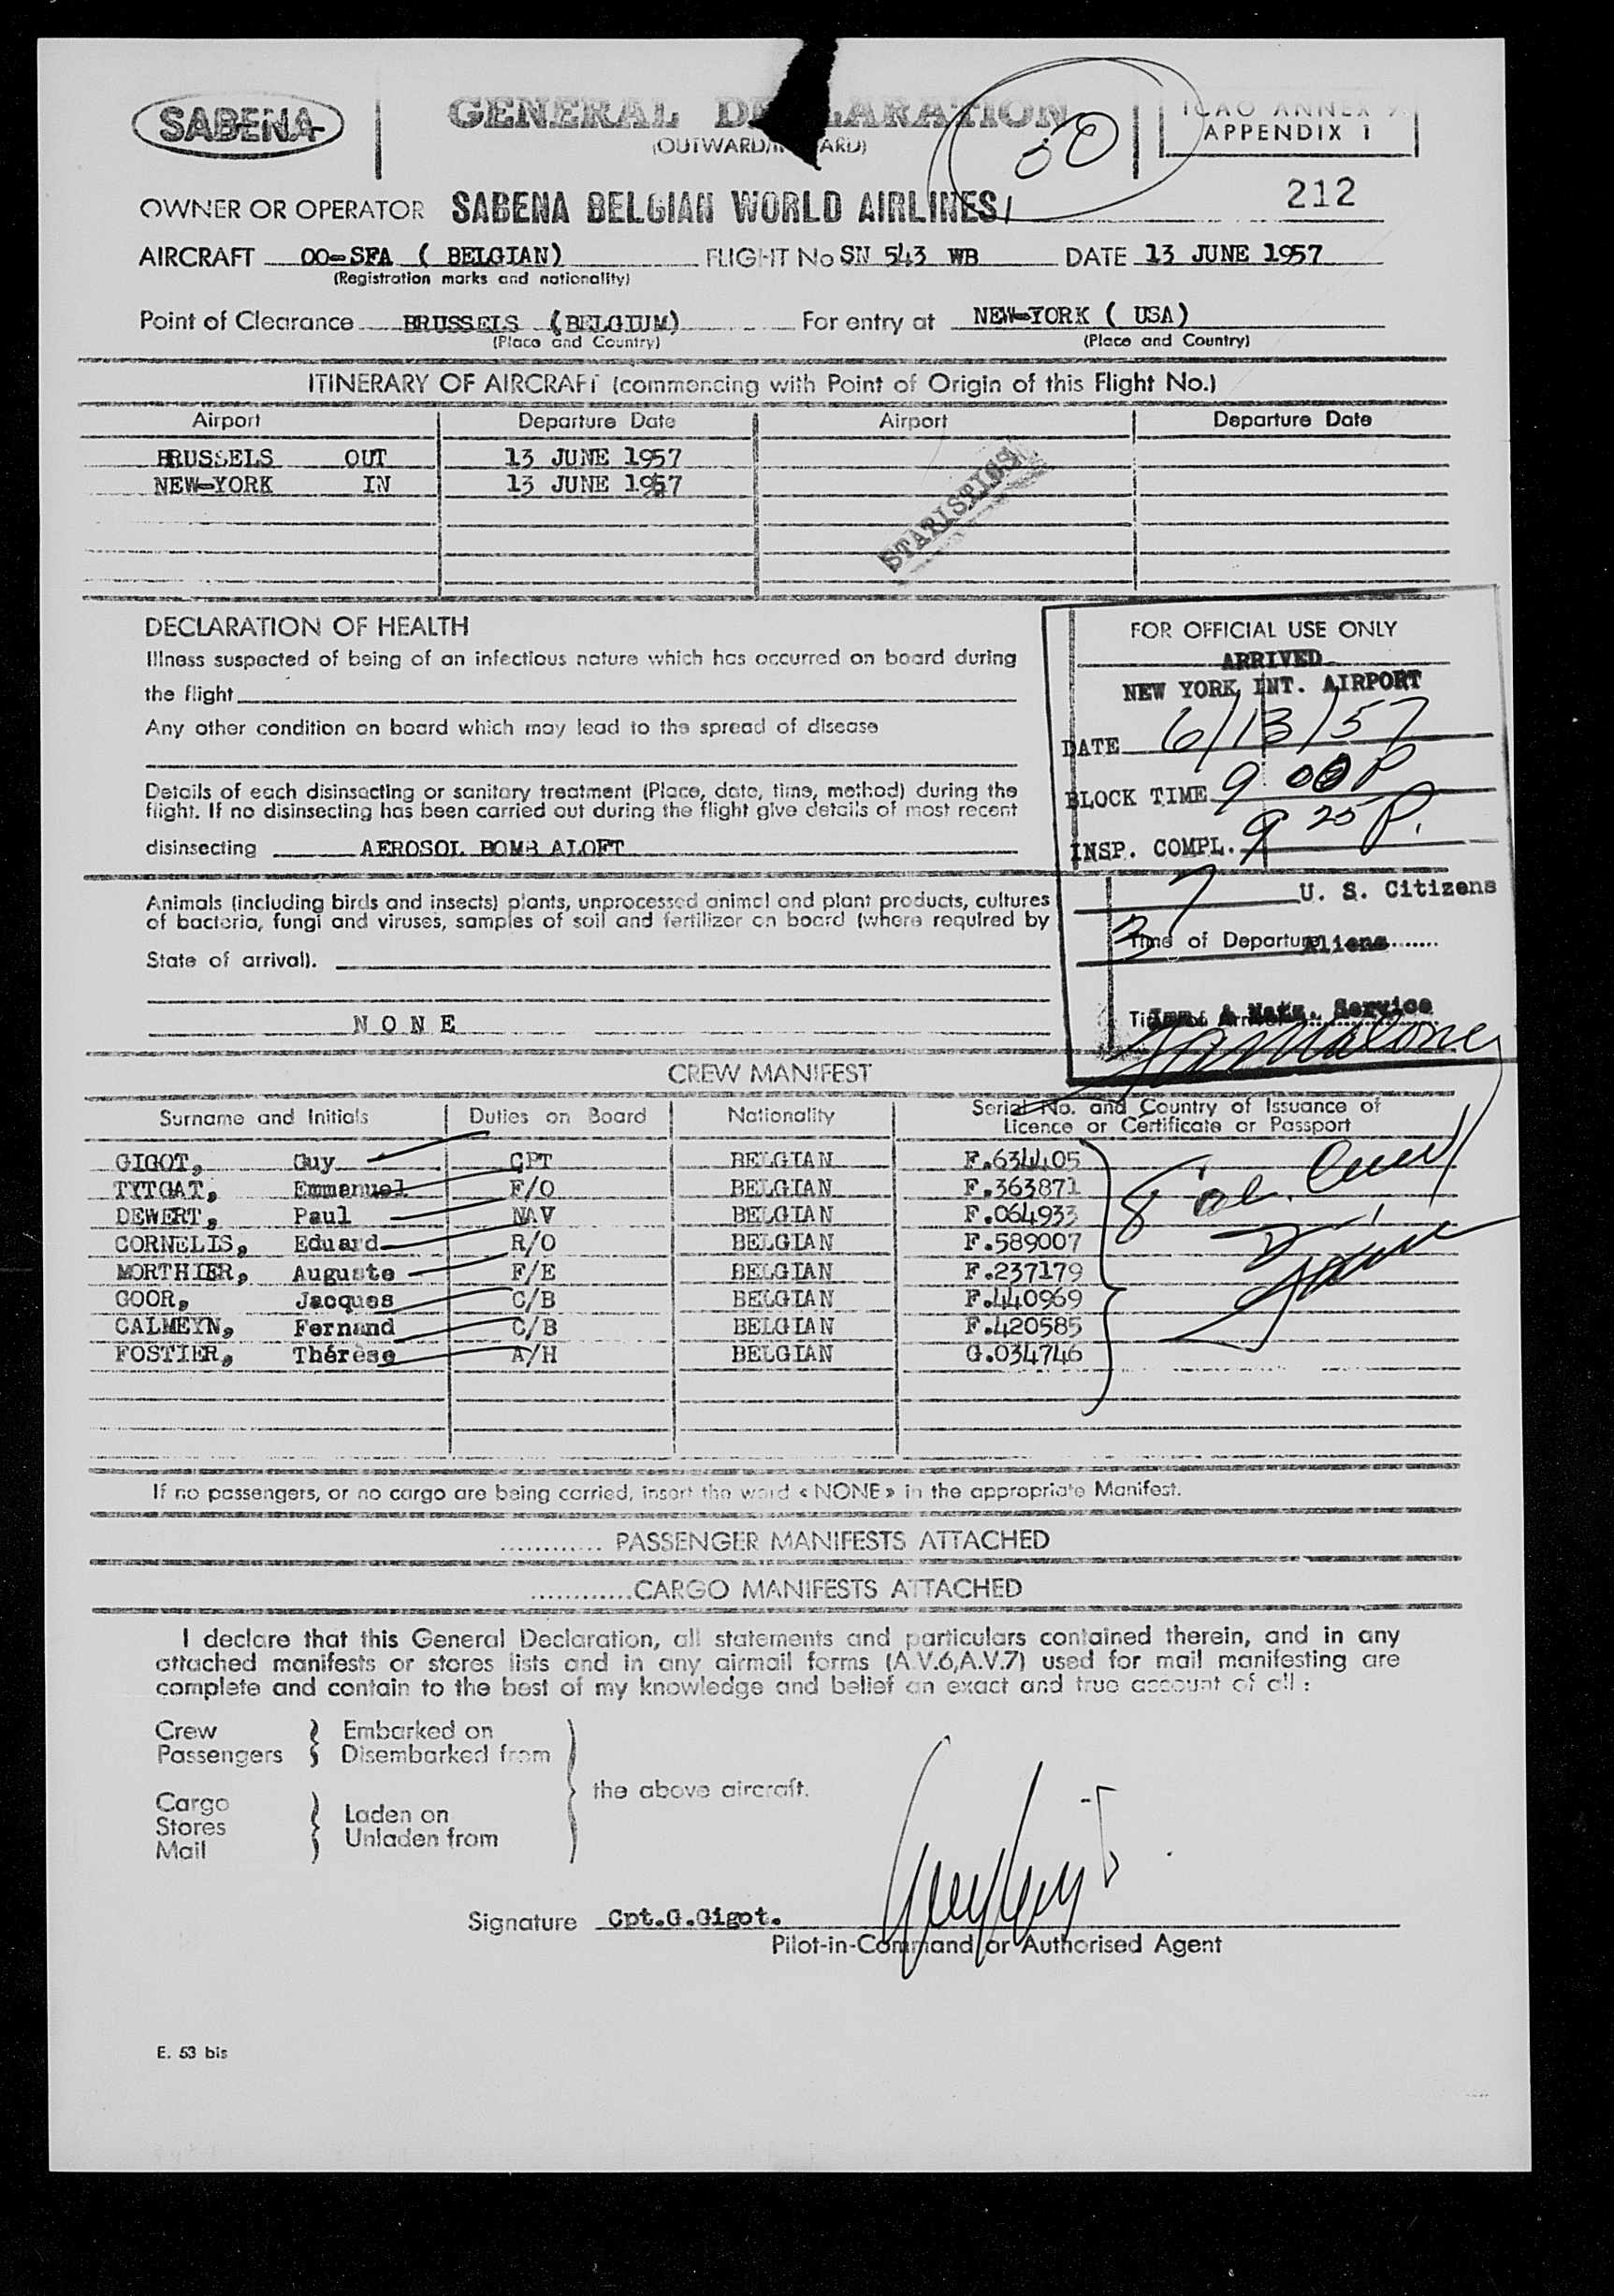 SABENA
GENERAL DECLARATION
(OUTWARD/INWARD)
50
ICAO ANNEX 9
APPENDIX 1
212
OWNER OR OPERATOR SABENA BELGIAN WORLD AIRLINES
AIRCRAFT OO-SFA ( BELGIAN) FLIGHT No SN 543 WB DATE 13 JUNE 1957
(Registration marks and nationality)
Point of Clearance BRUSSELS (BELGIUM) For entry at NEW-YORK ( USA)
(Place and Country) (Place and Country)
ITINERARY OF AIRCRAFT (commencing with Point of Origin of this Flight No.)
Airport Departure Date Airport Departure Date
BRUSSELS OUT 13 JUNE 1957
NEW-YORK IN 13 JUNE 1957
STATISTICS
DECLARATION OF HEALTH
Illness suspected of being of an infectious nature which has occurred on board during
the flight
Any other condition on board which may lead to the spread of disease
Details of each disinsecting or sanitary treatment (Place, date, time, method) during the
flight. If no disinsecting has been carried out during the flight give details of most recent
disinsecting AEROSOL BOMB ALOFT
Animals (including birds and insects) plants, unprocessed animal and plant products, cultures
of bacteria, fungi and viruses, samples of soil and fertilizer on board (where required by
State of arrival).
NONE
FOR OFFICIAL USE ONLY
ARRIVED
NEW YORK INT. AIRPORT
DATE 6/13/57
BLOCK TIME 9 00 P
INSP. COMPL. 9 25 P.
7 U. S. Citizens
37 Aliens
Time of Departure
Time of Arrival
Imm. & Natz. Service
CREW MANIFEST
Surname and Initials Duties on Board Nationality Serial No. and Country of Issuance of
Licence or Certificate or Passport
GIGOT, Guy CPT BELGIAN F.634405
TYTGAT, Emmanuel F/O BELGIAN F.363871
DEWERT, Paul NAV BELGIAN F.064933
CORNELIS, Eduard R/O BELGIAN F.589007
MORTHIER, Auguste F/E BELGIAN F.237179
GOOR, Jacques C/B BELGIAN F.440969
CALMEYN, Fernand C/B BELGIAN F.420585
FOSTIER, Thérèse A/H BELGIAN G.034746
If no passengers, or no cargo are being carried, insert the word « NONE » in the appropriate Manifest.
............ PASSENGER MANIFESTS ATTACHED
............ CARGO MANIFESTS ATTACHED
I declare that this General Declaration, all statements and particulars contained therein, and in any
attached manifests or stores lists and in any airmail forms (A.V.6,A.V.7) used for mail manifesting are
complete and contain to the best of my knowledge and belief an exact and true account of all :
Crew Embarked on
Passengers Disembarked from
the above aircraft.
Cargo
Stores Laden on
Mail Unladen from
Signature Cpt.G.Gigot.
Pilot-in-Command or Authorised Agent
E. 53 bis